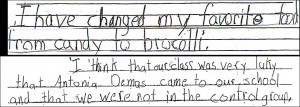 I have changed my favorite food
from candy to brocolli.
I think that our class was very luky
that Antonia Demas came to our school
and that we were not in the control group.